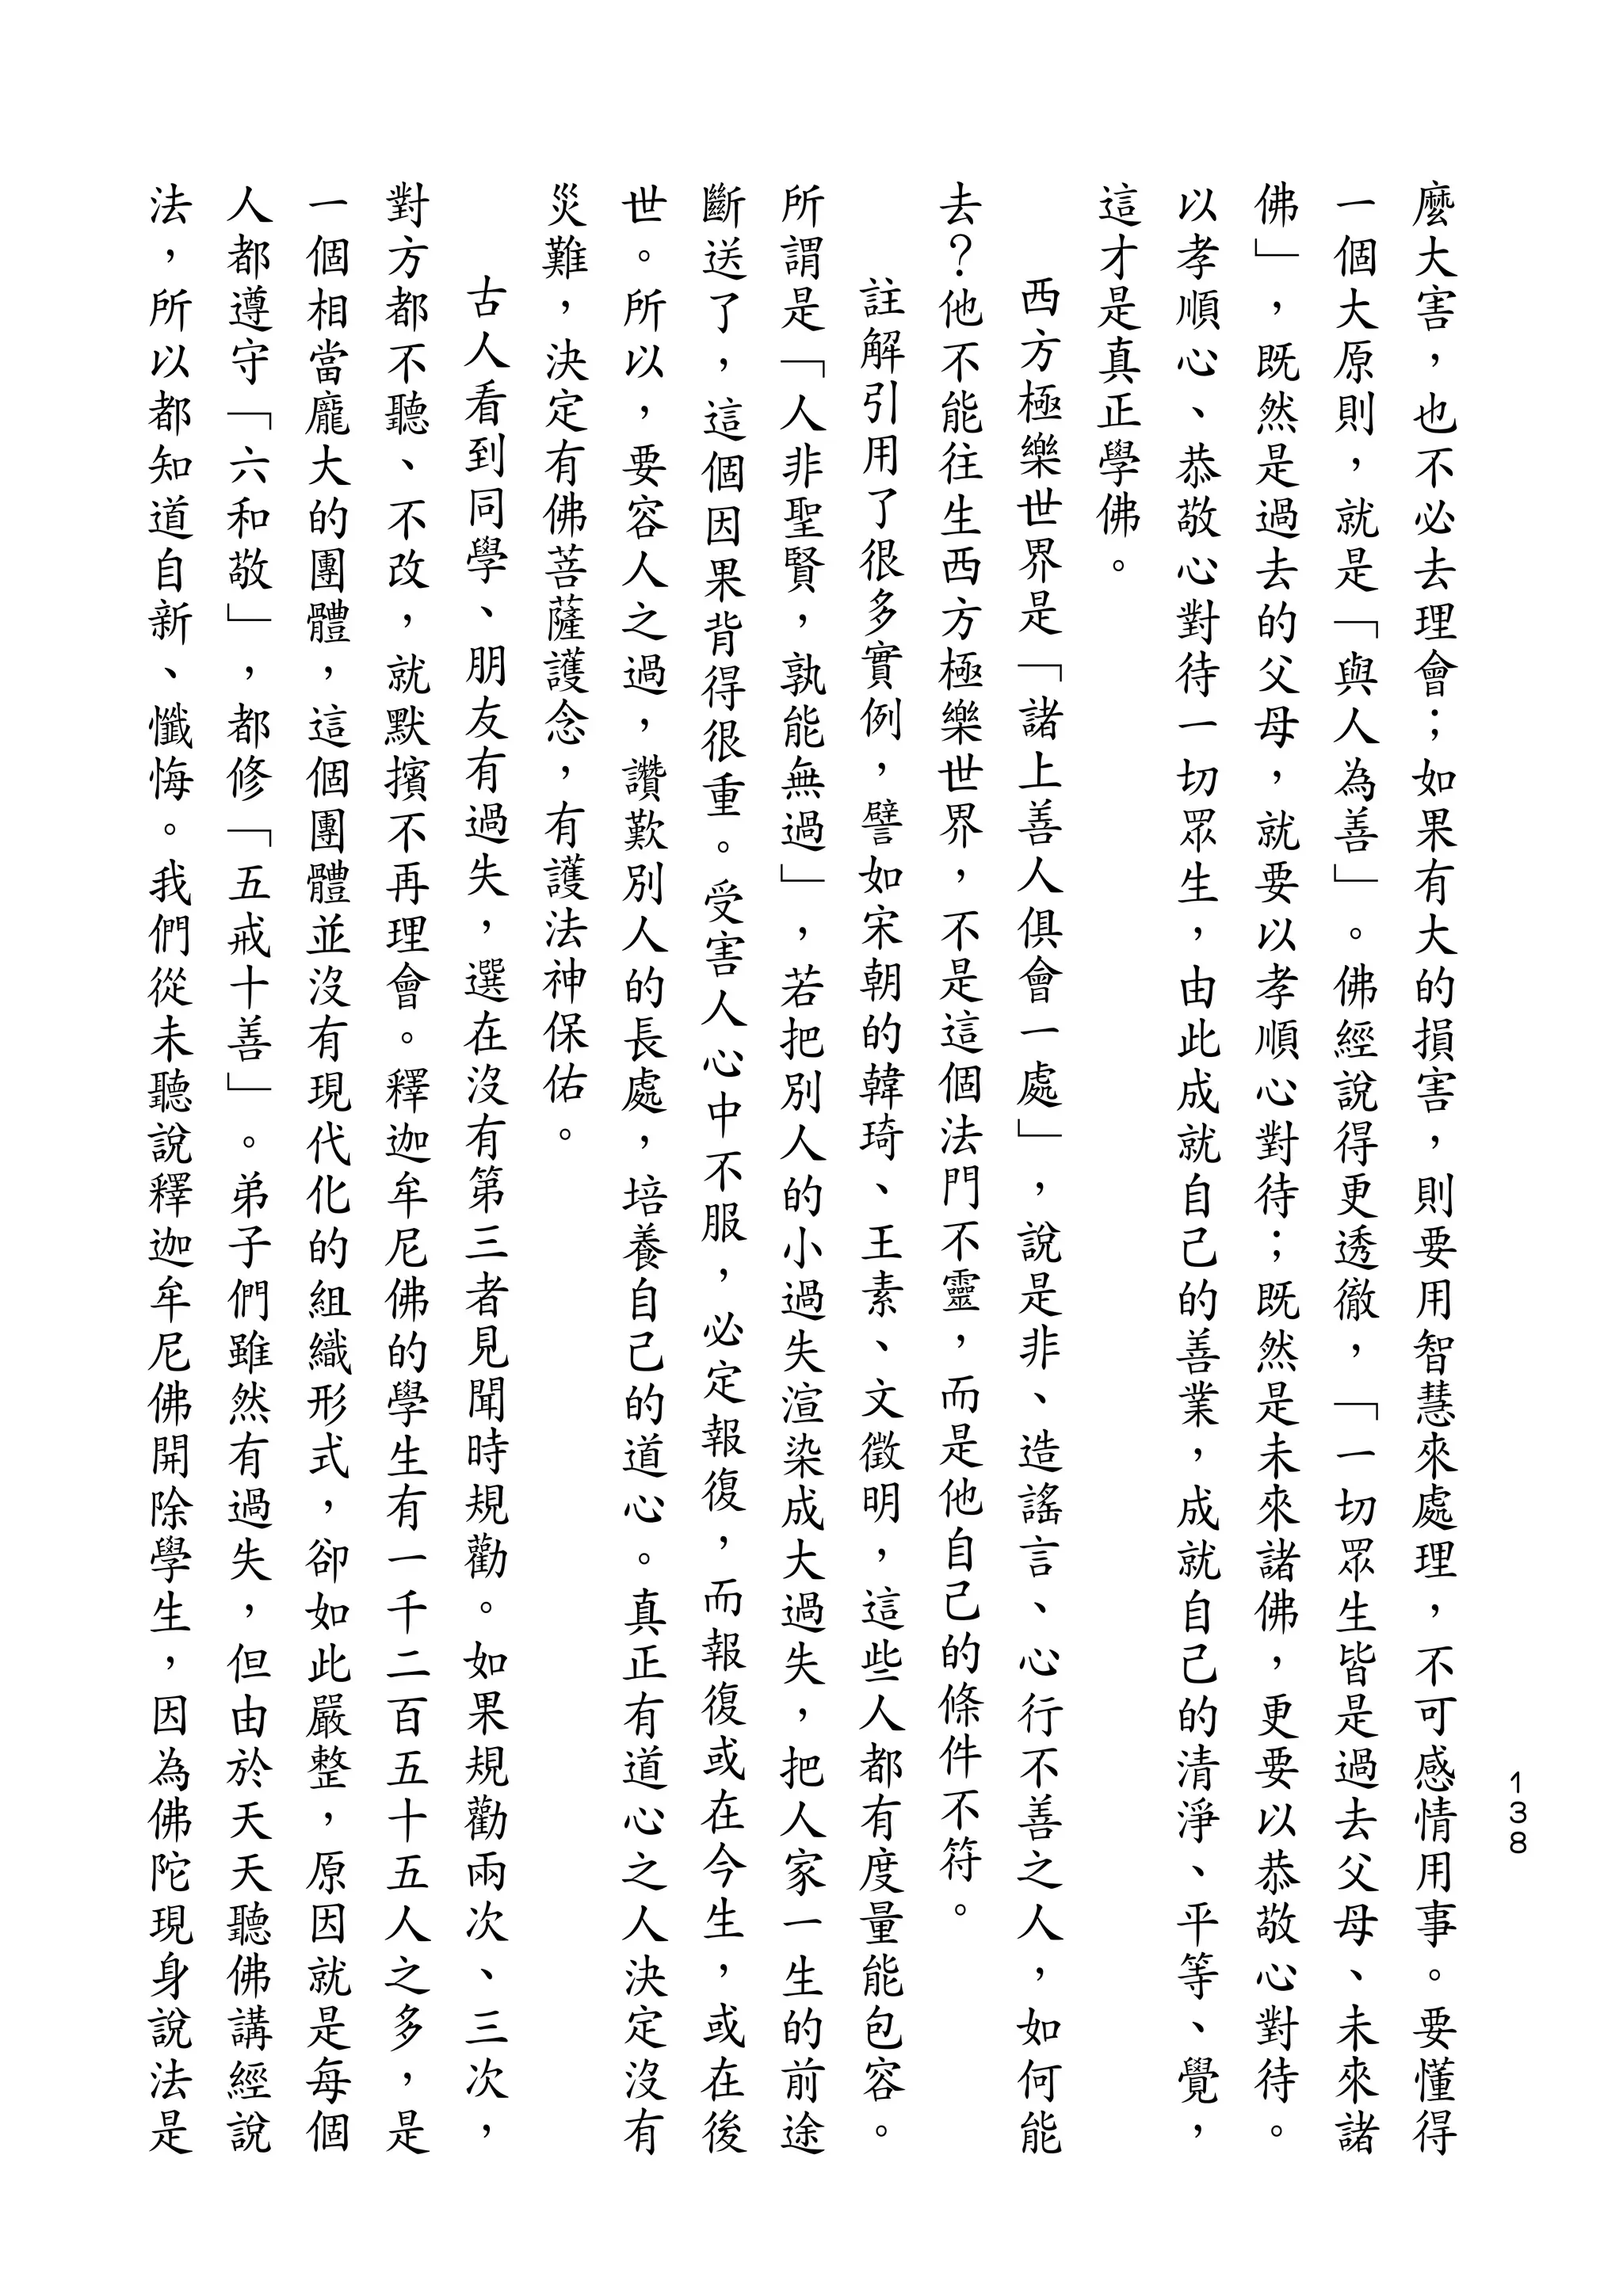 138
麼大害，也不必去理會；如果有大的損害，則要用智慧來處理，不可感情用事。要懂得
一個大原則，就是「與人為善」。佛經說得更透徹，「一切眾生皆是過去父母、未來諸
佛」，既然是過去的父母，就要以孝順心對待；既然是未來諸佛，更要以恭敬心對待。
以孝順心、恭敬心對待一切眾生，由此成就自己的善業，成就自己的清淨、平等、覺，
這才是真正學佛。
西方極樂世界是「諸上善人俱會一處」，說是非、造謠言、心行不善之人，如何能
去？他不能往生西方極樂世界，不是這個法門不靈，而是他自己的條件不符。
註解引用了很多實例，譬如宋朝的韓琦、王素、文徵明，這些人都有度量能包容。
所謂是「人非聖賢，孰能無過」，若把別人的小過失渲染成大過失，把人家一生的前途
斷送了，這個因果背得很重。受害人心中不服，必定報復，而報復或在今生，或在後
世。所以，要容人之過，讚歎別人的長處，培養自己的道心。真正有道心之人決定沒有
災難，決定有佛菩薩護念，有護法神保佑。
古人看到同學、朋友有過失，選在沒有第三者見聞時規勸。如果規勸兩次、三次，
對方都不聽、不改，就默擯不再理會。釋迦牟尼佛的學生有一千二百五十五人之多，是
一個相當龐大的團體，這個團體並沒有現代化的組織形式，卻如此嚴整，原因就是每個
人都遵守「六和敬」，都修「五戒十善」。弟子們雖然有過失，但由於天天聽佛講經說
法，所以都知道自新、懺悔。我們從未聽說釋迦牟尼佛開除學生，因為佛陀現身說法是